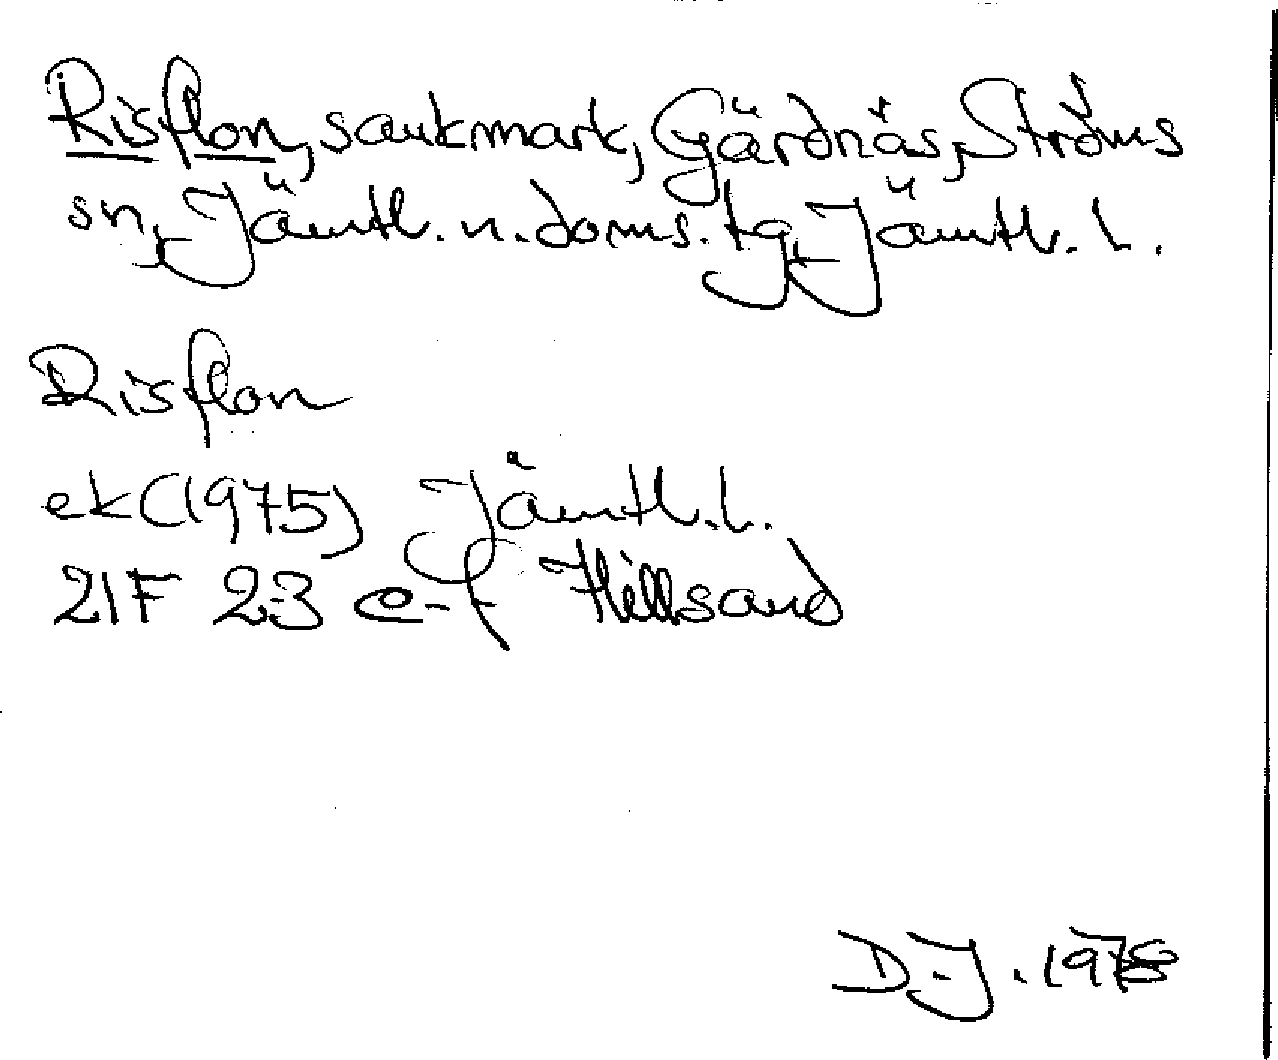 Risflon, sankmark, Gärdnäs, Ströms
sn, Jämtl. n. doms. tg, Jämtl. l.
Risflon
ek (1975) Jämtl. l.
21F 23 e-f Hillsand
D-J. 1978